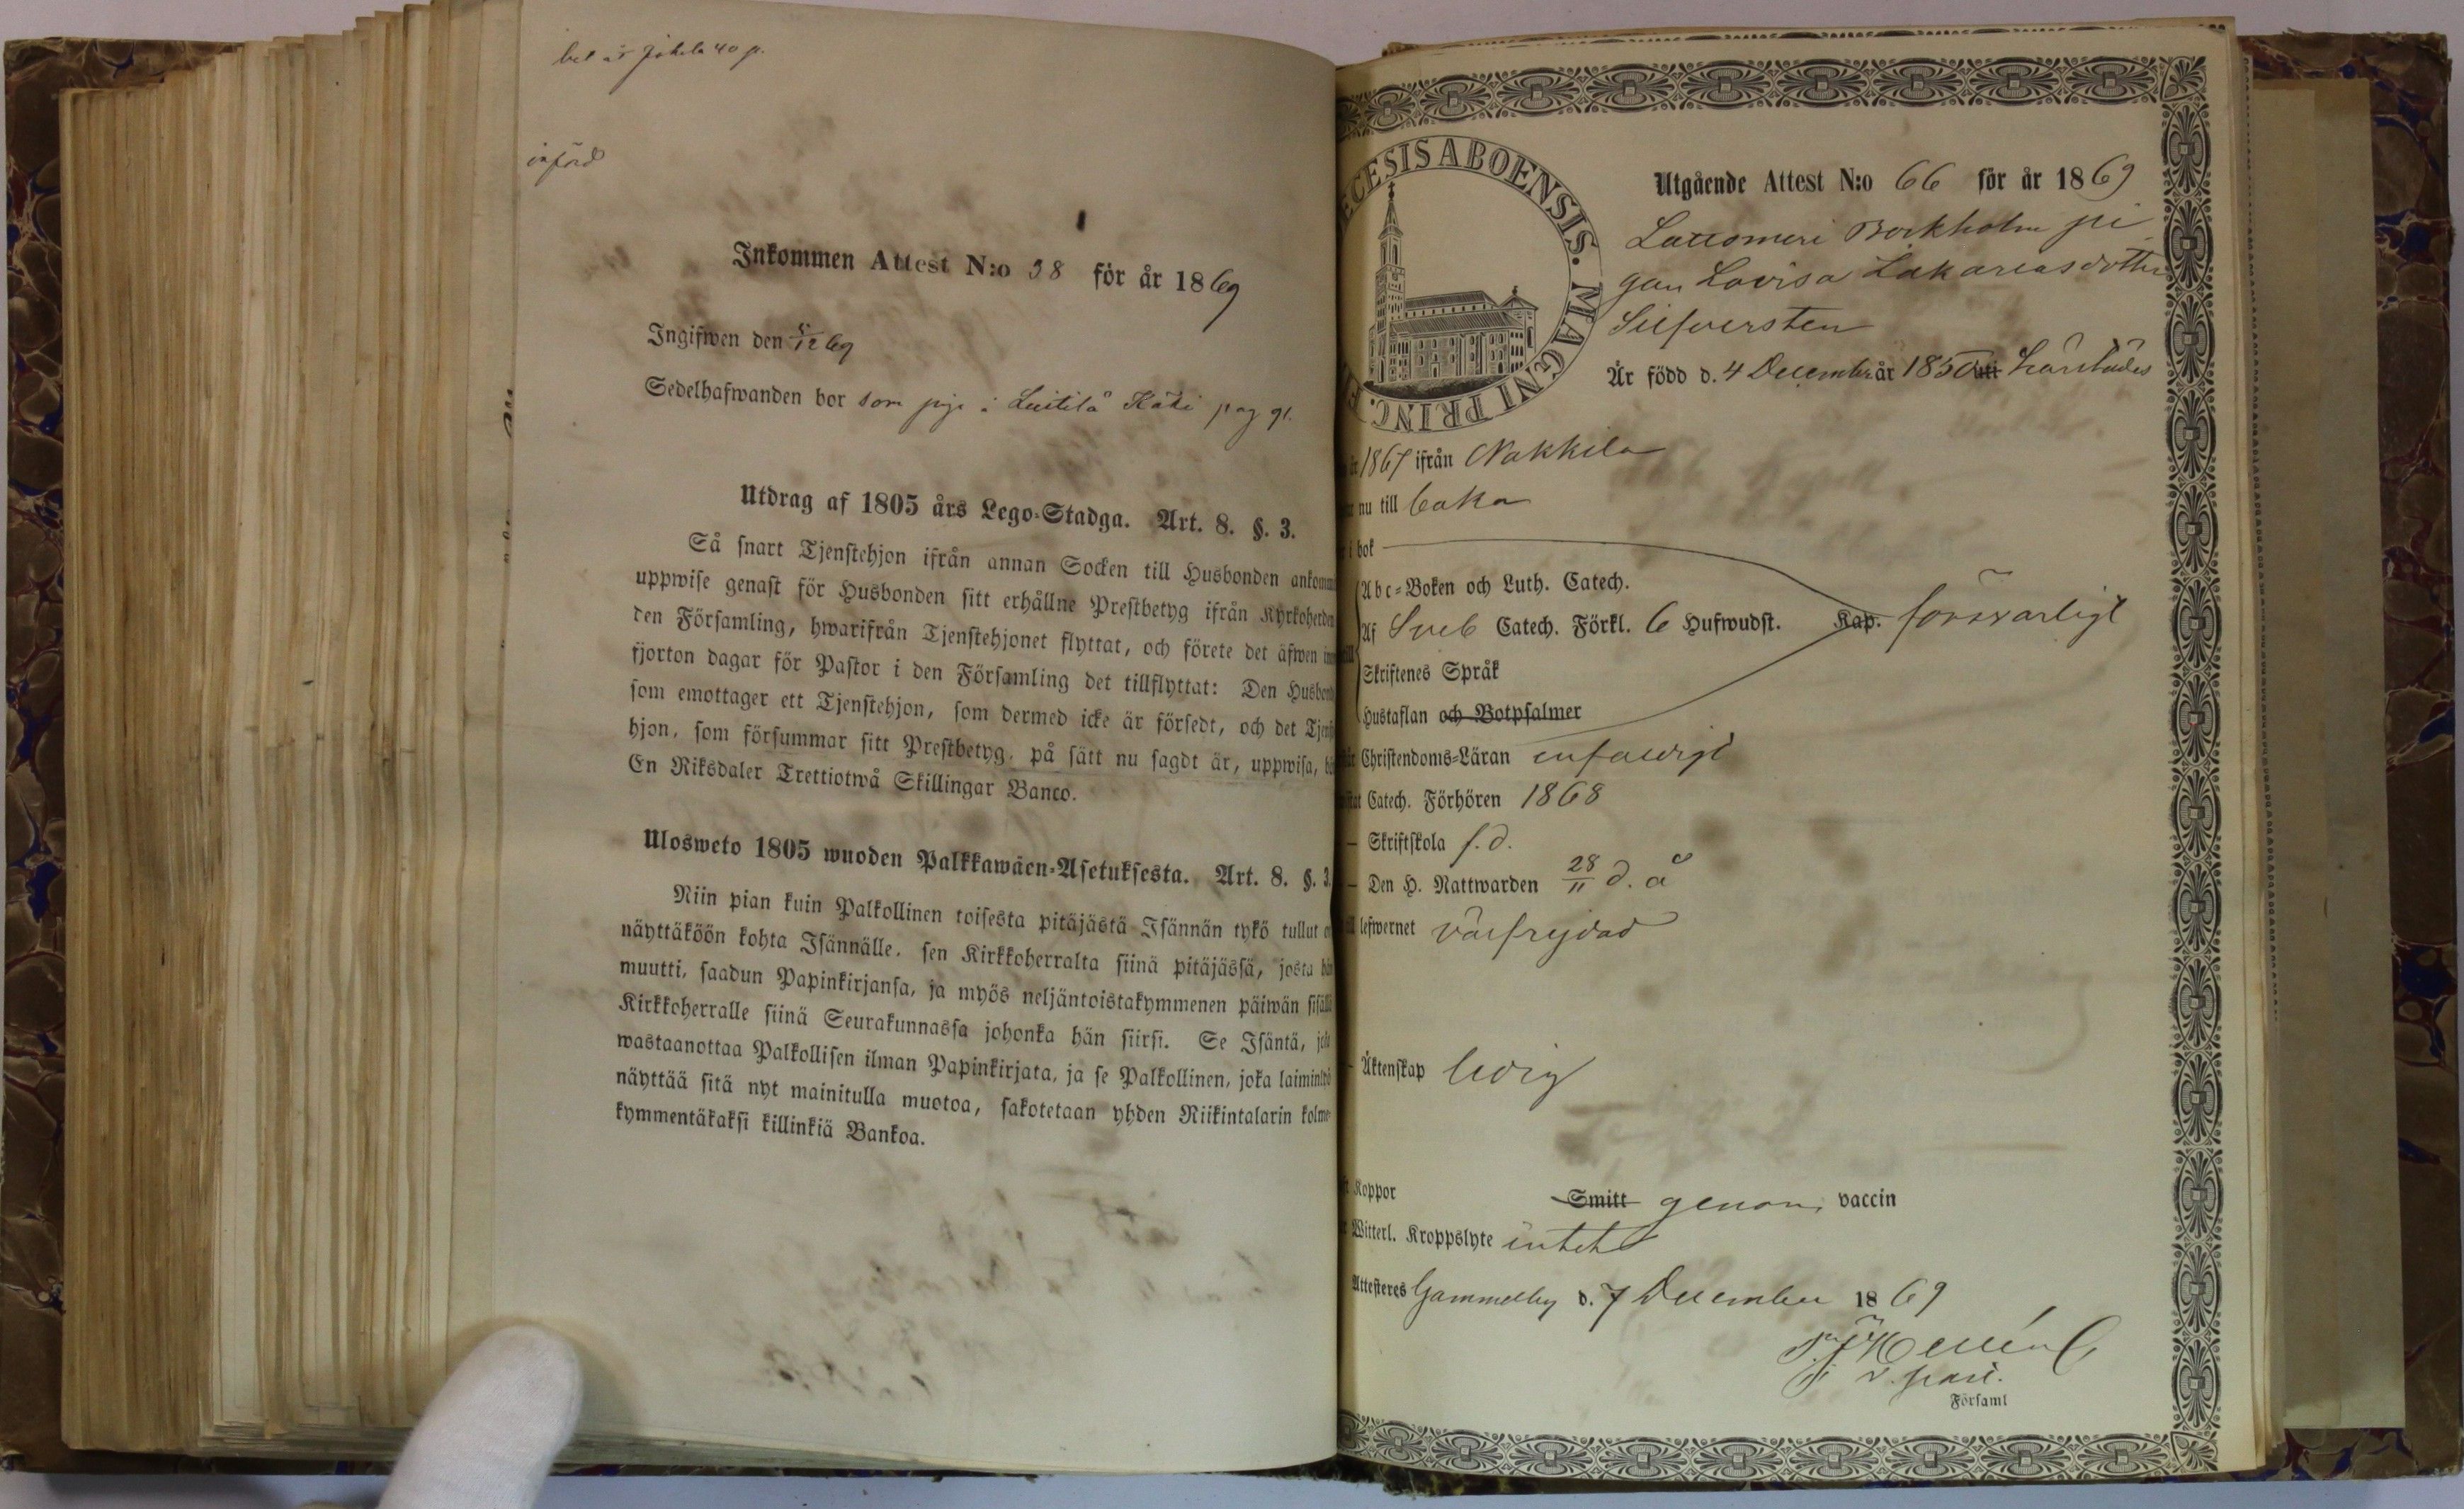 införd
Inkommen Attest N:o 38 för år 1869
Ingifwen den 69
Sedelhafwanden bor som piga i Käki pag 91.
Utdrag af 1805 års Lego-Stadga. Art. 8. §. 3.
Så snart Tjenstehjon ifrån annan Socken till Husbonden ankomm
uppwise genast för Husbonden sitt erhållne Prestbetyg ifrån Kyrkoherden
den Församling, hwarifrån Tjenstehjonet flyttat, och förete det äfwen inn
fjorton dagar för Pastor i den Församling det tillflyttat: Den Husbond
som emottager ett Tjenstehjon, som dermed icke är försedt, och det Tjenst
hjon, som försummar sitt Prestbetyg, på sätt nu sagdt är, uppwisa, bö
En Riksdaler Trettiotwå Skillingar Banco.
Ulosweto 1805 wuoden Palkkawäen-Asetuksesta. Art. 8. §. 3.
Niin pian kuin Palkollinen toisesta pitäjästä Isännän tykö tullut o
näyttäköön kohta Isännälle, sen Kirkkoherralta siinä pitäjässä, josta hän
muutti, saadun Papinkirjansa, ja myös neljäntoistakymmenen päiwän sisällä
Kirkkoherralle siinä Seurakunnassa johonka hän siirsi. Se Isäntä, jok
wastaanottaa Palkollisen ilman Papinkirjata, ja se Palkollinen, joka laiminlyö
näyttää sitä nyt mainitulla muotoa, sakotetaan yhden Riikintalarin kolme-
kymmentäkaksi killinkiä Bankoa.
ECESIS ABOENSIS. MAGNI PRINC.
Utgående Attest N:o 66 för år 1869
Lattomeri Bockholm pi
gan Lovisa Zakariasdotter
Silfversten
Är född d. 4 December år 1850 uti härstädes
1867 ifrån Nakkila
nu till
bok
Abc-Boken och Luth. Catech.
Af Sveb Catech. Förkl. 6 Hufwudst. Kap. försvarligt
Skriftenes Språk
Hustaflan och Botpsalmer
Christendoms-Läran enfaldigt
Catech. Förhören 1868
– Skriftskola f.d.
– Den H. Nattwarden 28/11 d. å
lefwernet välfrejdad
Äktenskap ledig
Koppor Smitt genom vaccin
Witterl. Kroppslyte intet
Attesteres Gammelby d. 7 December 1869
v. past.
Församl